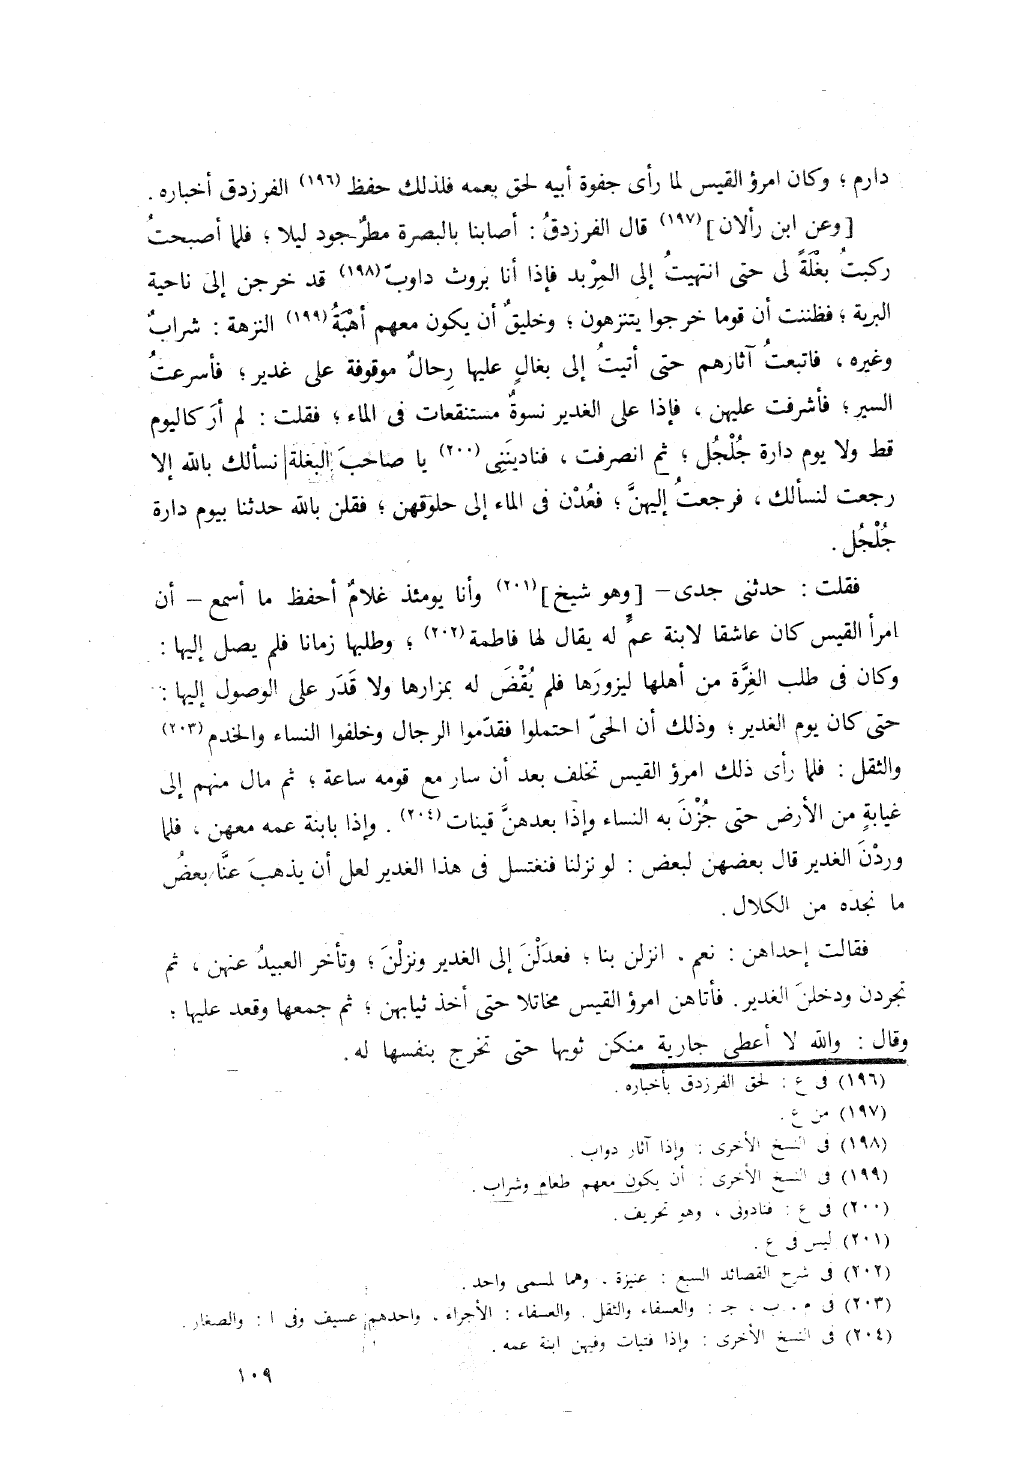 دارم ؛ وكان امرؤ القيس لما رأى جفوة أبيه لحق بعمه فلذلك حفظ (١٩٦) الفرزدق أخباره .
[وعن ابن رألان] (١٩٧) قال الفرزدقُ : أصابنا بالبصرة مطرٌ جود ليلا ؛ فلما أصبحتُ
ركبتُ بغْلَةً لى حتى انتهيتُ إلى المِرْبد فإذا أنا بروث داوبّ (١٩٨) قد خرجن إلى ناحية
البرية ؛ فظننت أن قوما خرجوا يتنزهون ؛ وخليقٌ أن يكون معهم أهْبَةُ (١٩٩) النزهة : شرابٌ
وغيره ، فاتبعتُ آثارهم حتى أتيتُ إلى بغالٍ عليها رِحالٌ موقوفة على غدير ؛ فأسرعتُ
السير ؛ فأشرفت عليهن ، فإذا على الغدير نسوةٌ مستنقعات فى الماء ؛ فقلت : لم أرَ كاليوم
قط ولا يوم دارة جُلْجُل ؛ ثم انصرفت ، فنادينَنِى (٢٠٠) يا صاحبَ البغلة نسألك بالله إلا
رجعت لنسألك ، فرجعتُ إليهنَّ ؛ فعُدْن فى الماء إلى حلوقهن ؛ فقلن بالله حدثنا بيوم دارة
جُلْجُل .
فقلت : حدثنى جدى – [وهو شيخ] (٢٠١) وأنا يومئذ غلامٌ أحفظ ما أسمع – أن
امرأ القيس كان عاشقا لابنة عمٍّ له يقال لها فاطمة (٢٠٢) ؛ وطلبها زمانا فلم يصل إليها :
وكان فى طلب الغِرَّة من أهلها ليزورَها فلم يُقْضَ له بمزارها ولا قَدَر على الوصول إليها :
حتى كان يوم الغدير ؛ وذلك أن الحىّ احتملوا فقدّموا الرجال وخلفوا النساء والخدم (٢٠٣)
والثقل : فلما رأى ذلك امرؤ القيس تخلف بعد أن سار مع قومه ساعة ؛ ثم مال منهم إلى
غيابةٍ من الأرض حتى جُزْنَ به النساء وإذا بعدهنَّ قينات (٢٠٤) . وإذا بابنة عمه معهن ، فلما
وردْنَ الغدير قال بعضهن لبعض : لو نزلنا فنغتسل فى هذا الغدير لعل أن يذهبَ عنَّا بعضُ
ما نجده من الكلال .
فقالت إحداهن : نعم . انزلن بنا ؛ فعدَلْنَ إلى الغدير ونزلْنَ ؛ وتأخر العبيدُ عنهن ، ثم
تجردن ودخلنَ الغدير . فأتاهن امرؤ القيس مخاتلا حتى أخذ ثيابهن ؛ ثم جمعها وقعد عليها ؛
وقال : والله لا أعطى جارية منكن ثوبها حتى تخرج بنفسها له .
(١٩٦) فى ع : لحق الفرزدق بأخباره .
(١٩٧) من ع .
(١٩٨) فى النسخ الأخرى : وإذا آثار دواب .
(١٩٩) فى النسخ الأخرى : أن يكون معهم طعام وشراب .
(٢٠٠) فى ع : فنادونى ، وهو تحريف .
(٢٠١) ليس فى ع .
(٢٠٢) فى شرح القصائد السبع : عنيزة . وهما لمسمى واحد .
(٢٠٣) فى م ، ب ، جـ : والعسفاء والثقل . والعسفاء : الأجراء ، واحدهم عسيف وفى ا : والصغار .
(٢٠٤) فى النسخ الأخرى : وإذا فتيات وفيهن ابنة عمه .
١٠٩